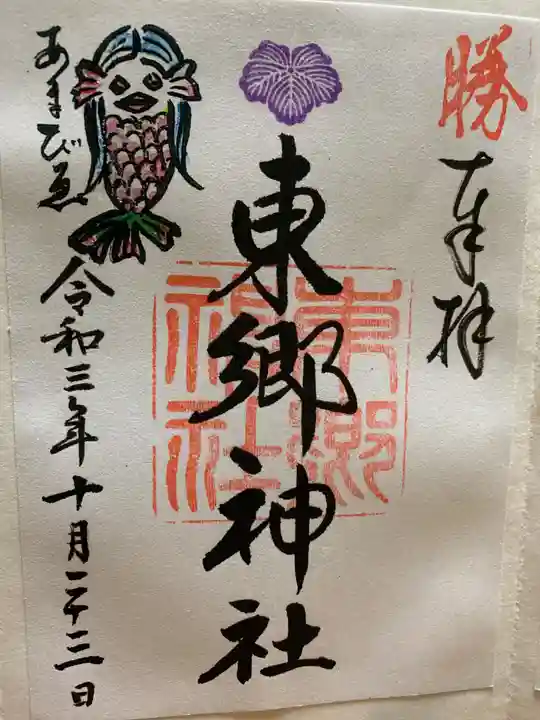 勝
奉拝
東郷神社
東郷神社
あまびゑ
令和三年十月二十三日